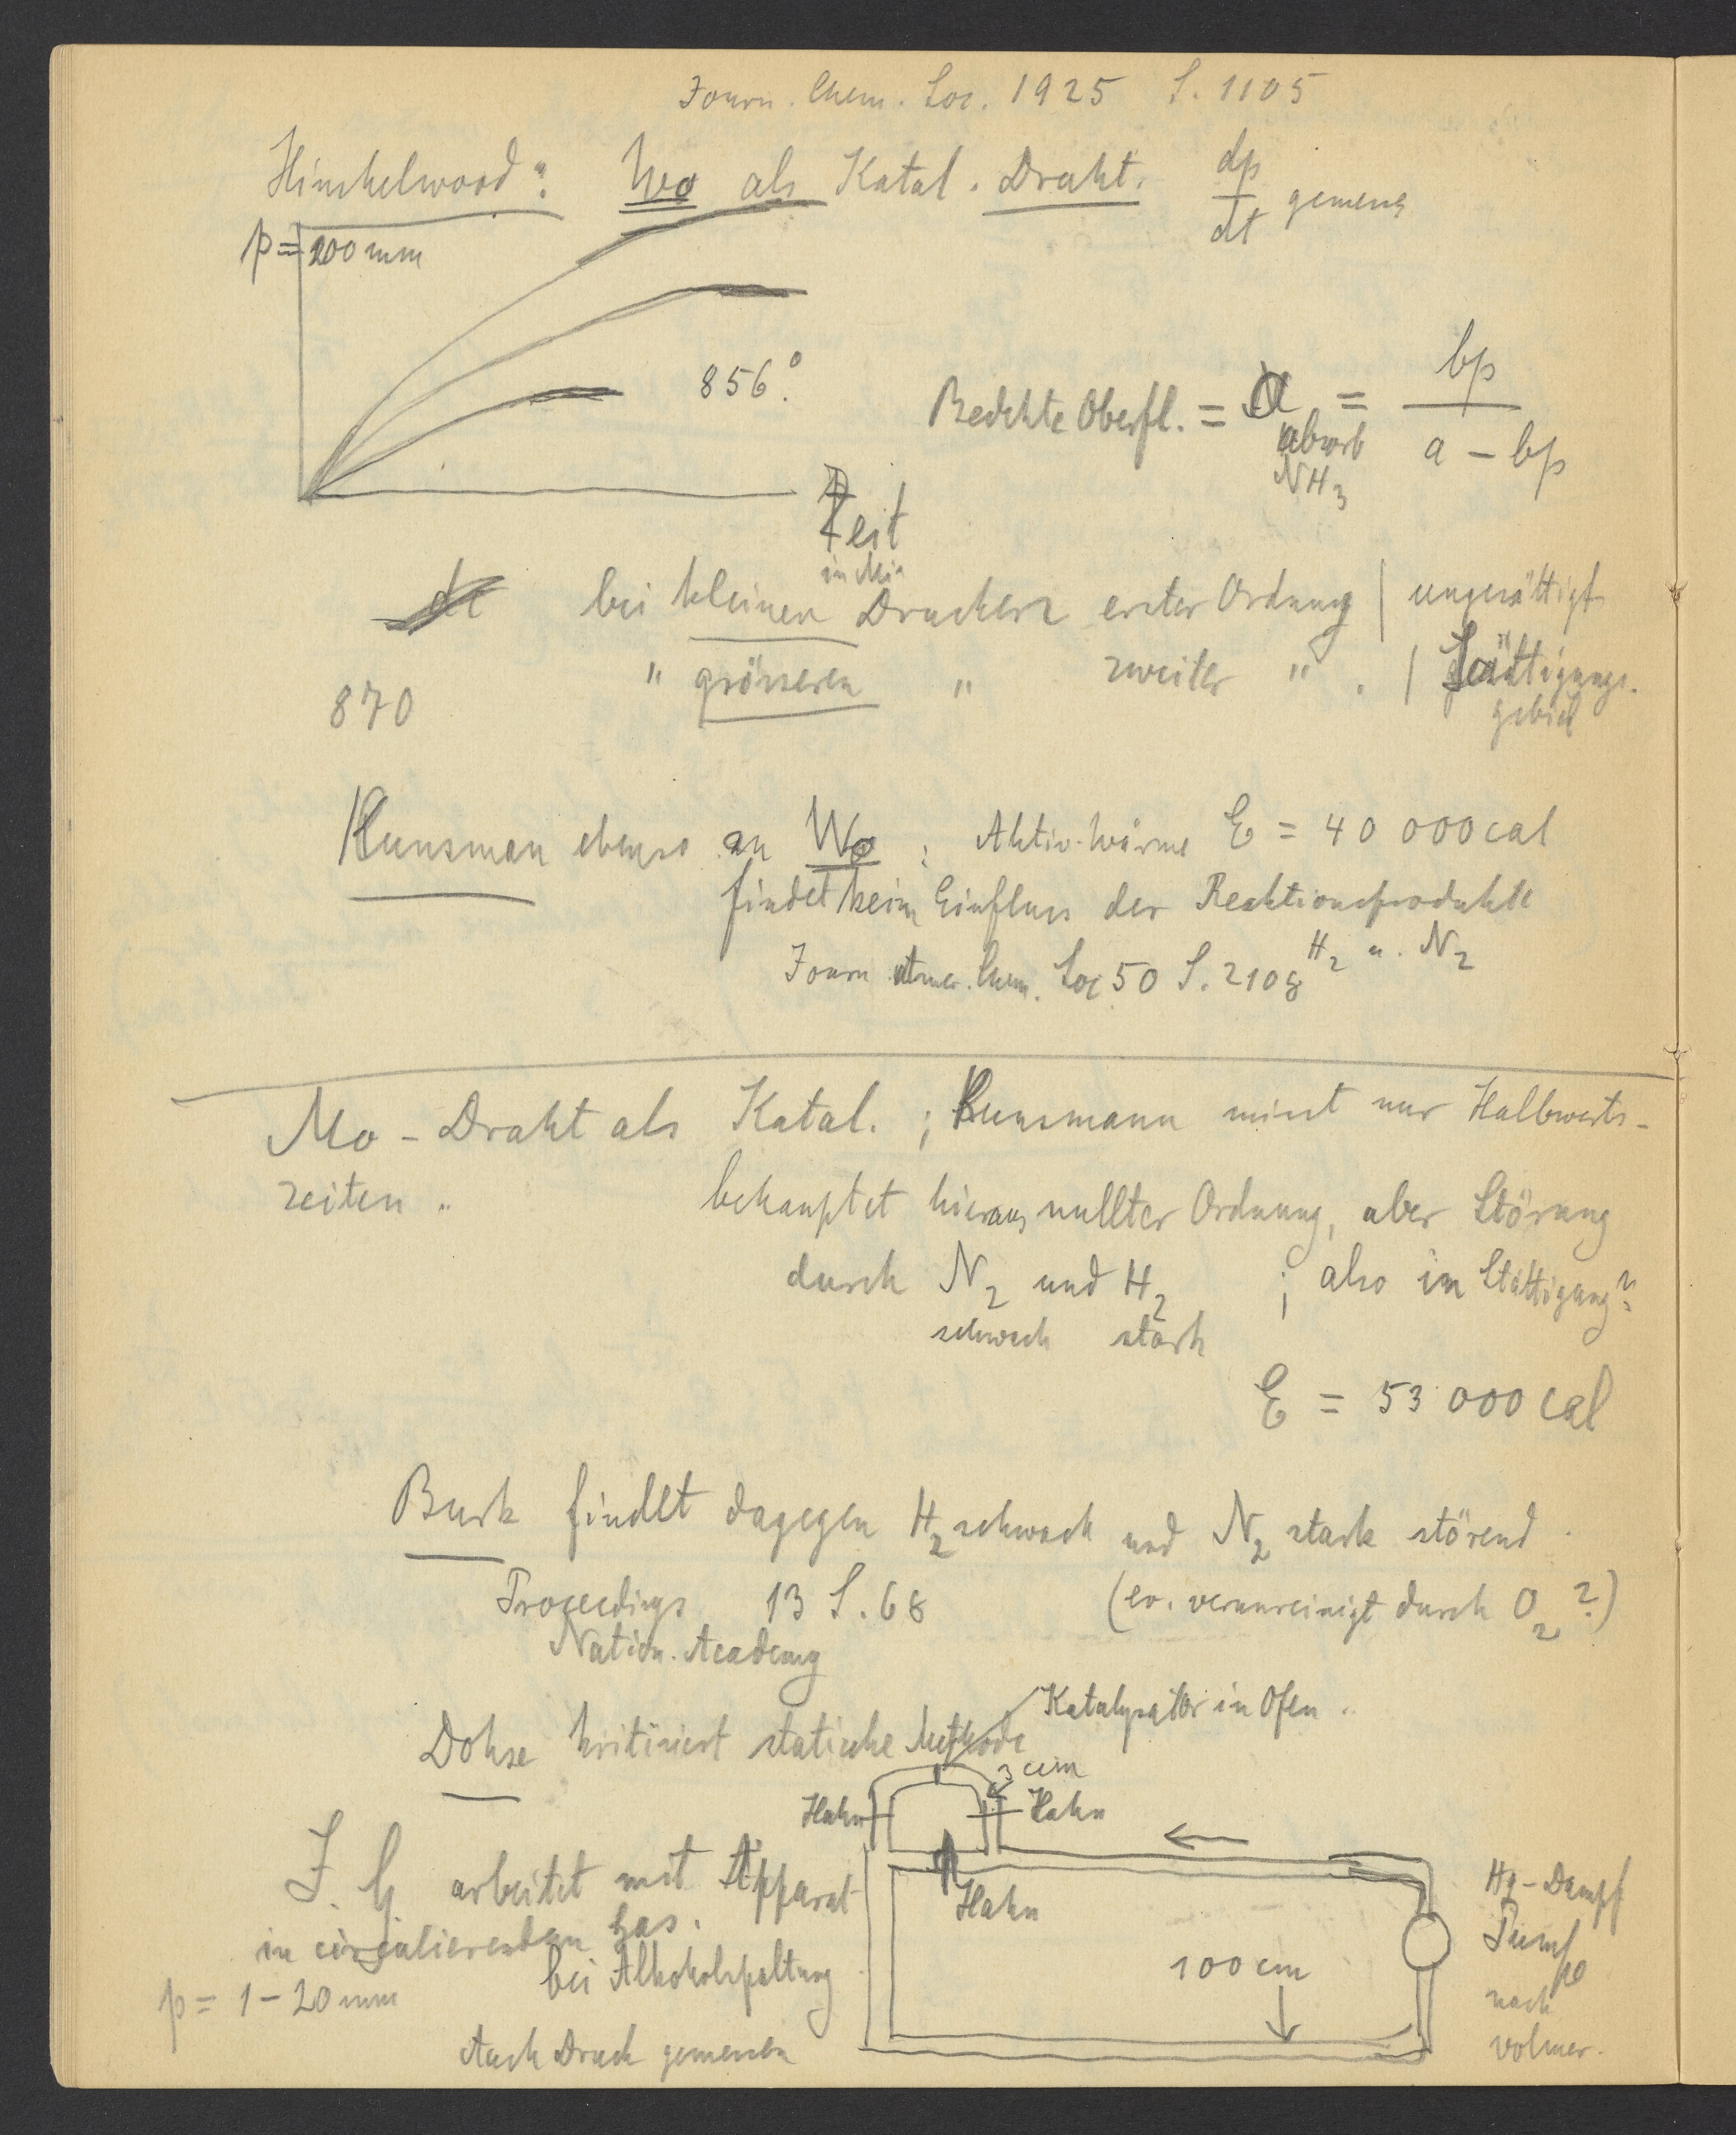 Journ. Chem. Soc. 1925 S. 1105
Hinshelwood: Wo als Katal. Draht. dp/dt gemess
p = 200 mm
856°.
Bedekte Oberfl. = a = bp / a - bp
absorb
NH3
Zeit
in Min
bei kleinen Drucken erster Ordnung | ungesättigt
" grösseren " zweiter " . | Sättigungs-
gebiet
870
Kunsman ebenso an Wo : Aktiv-Wärme E = 40 000 cal
findet kein Einfluss der Reaktionsprodukte
H2 u. N2
Journ Amer. Chem. Soc 50 S. 2108
Mo - Draht als Katal. ; Kunsmann misst nur Halbwerts-
zeiten ..
behauptet hieraus nullter Ordnung, aber Störung
durch N2 und H2 ; also im Sättigung?
schwach stark
E = 53 000 cal
Burk findet dagegen H2 schwach und N2 stark störend .
Proceedings 13 S. 68 (ev. verunreinigt durch O2 ?)
Nation. Academy
Katalysator in Ofen .
Dohse kritisiert statische Methode
3 cm
Hahn Hahn
J. G. arbeitet mit Apparat
in circulierendem Gas.
Hahn
Hg-Dampf
Pumpe
nach
Volmer.
bei Alkoholspaltung
100 cm
p = 1-20 mm
Auch Druck gemessen